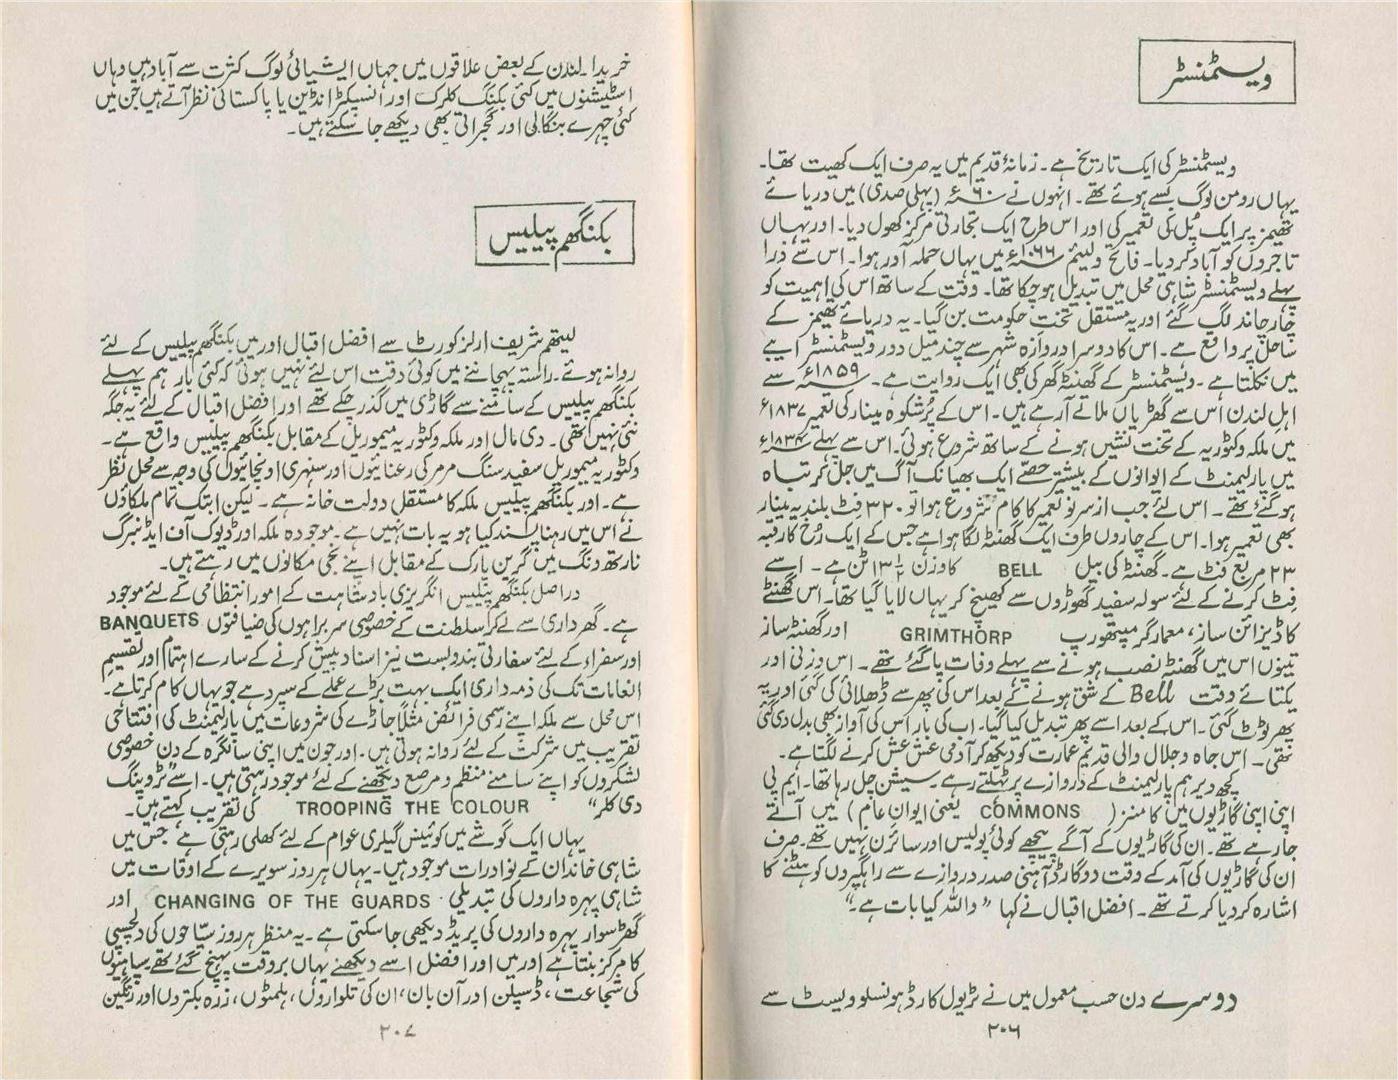 ویسٹمنسٹر
ویسٹمنسٹر کی ایک تاریخ ہے۔ زمانۂ قدیم میں یہ صرف ایک کھیت تھا۔
یہاں رومن لوگ بسے ہوئے تھے۔ انہوں نے ۶۰ء (پہلی صدی) میں دریائے
تھیمز پر ایک پُل کی تعمیر کی اور اس طرح ایک تجارتی مرکز کھول دیا۔ اور یہاں
تاجروں کو آباد کر دیا۔ فاتح ولیئم ۱۰۶۶ء میں یہاں حملہ آور ہوا۔ اس سے ذرا
پہلے ویسٹمنسٹر شاہی محل میں تبدیل ہو چکا تھا۔ وقت کے ساتھ اس کی اہمیت کو
چار چاند لگ گئے اور یہ مستقل تختِ حکومت بن گیا۔ یہ دریائے تھیمز کے
ساحل پر واقع ہے۔ اس کا دوسرا دروازہ شہر سے چند میل دور ویسٹمنسٹر ایبے
میں نکلتا ہے۔ ویسٹمنسٹر کے گھنٹہ گھر کی بھی ایک روایت ہے۔ ۱۸۵۹ء سے
اہلِ لندن اس سے گھڑیاں ملاتے آ رہے ہیں۔ اس کے پُرشکوہ مینار کی تعمیر ۱۸۳۷ء
میں ملکہ وکٹوریہ کے تخت نشیں ہونے کے ساتھ شروع ہوئی۔ اس سے پہلے ۱۸۳۴ء
میں پارلیمنٹ کے ایوانوں کے بیشتر حصّے ایک بھیانک آگ میں جل کر تباہ
ہو گئے تھے۔ اس لئے جب از سرِ نو تعمیر کا کام شروع ہوا تو ۳۲۰ فٹ بلند یہ مینار
بھی تعمیر ہوا۔ اس کے چاروں طرف ایک گھنٹہ لگا ہوا ہے جس کے ایک رُخ کا رقبہ
۲۳ مربع فٹ ہے۔ گھنٹہ کی بیل BELL کا وزن ۱۳ ۱/۲ ٹن ہے۔ اسے
فِٹ کرنے کے لئے سولہ سفید گھوڑوں سے کھینچ کر یہاں لایا گیا تھا۔ اس گھنٹے
کا ڈیزائن ساز، معمار گرمپتھورپ GRIMTHORP اور گھنٹہ ساز
تینوں اس میں گھنٹہ نصب ہونے سے پہلے وفات پا گئے تھے۔ اس وزنی اور
یکتائے وقت Bell کے شق ہونے کے بعد اس کی پھر سے ڈھلائی کی گئی اور یہ
پھر ٹوٹ گئی۔ اس کے بعد اسے پھر تبدیل کیا گیا۔ اب کی بار اس کی آواز بھی بدل دی گئی
تھی۔ اس جاہ و جلال والی قدیم عمارت کو دیکھ کر آدمی عش عش کرنے لگتا ہے۔
کچھ دیر ہم پارلیمنٹ کے دروازے پر ٹہلتے رہے۔ سیشن چل رہا تھا۔ ایم پی
اپنی اپنی گاڑیوں میں کامنز ( COMMONS یعنی ایوانِ عام ) میں آتے
جا رہے تھے۔ ان کی گاڑیوں کے آگے پیچھے کوئی پولیس اور سائرن نہیں تھے۔ صرف
ان کی گاڑیوں کی آمد کے وقت دو گارڈ آہنی صدر دروازے سے راہگیروں کو ہٹنے کا
اشارہ کر دیا کرتے تھے۔ افضل اقبال نے کہا "واللہ کیا بات ہے۔"
دوسرے دن حسب معمول میں نے ٹریول کارڈ ہونسلو ویسٹ سے
۲۰۶
خریدا۔ لندن کے بعض علاقوں میں جہاں ایشیائی لوگ کثرت سے آباد ہیں وہاں
اسٹیشنوں میں کئی بکنگ کلرک اور انسپکٹر انڈین یا پاکستانی نظر آتے ہیں جن میں
کئی چہرے بنگالی اور گجراتی بھی دیکھے جا سکتے ہیں۔
بکنگھم پیلیس
لیتھم شریف ارلز کورٹ سے افضل اقبال اور میں بکنگھم پیلیس کے لئے
روانہ ہوئے۔ راستہ پہچاننے میں کوئی دقت اس لئے نہیں ہوئی کہ کئی بار ہم پہلے
بکنگھم پیلیس کے سامنے سے گاڑی میں گذر چکے تھے اور افضل اقبال کے لئے یہ جگہ
نئی نہیں تھی۔ دی مال اور ملکہ وکٹوریہ میموریل کے مقابل بکنگھم پیلیس واقع ہے۔
وکٹوریہ میموریل سفید سنگ مرمر کی رعنائیوں اور سنہری اونچائیوں کی وجہ سے محل نظر
ہے۔ اور بکنگھم پیلیس ملکہ کا مستقل دولت خانہ ہے۔ لیکن ابتک تمام ملکاؤں
نے اس میں رہنا پسند کیا ہو یہ بات نہیں ہے۔ موجودہ ملکہ اور ڈیوک آف ایڈنبرگ
نارتھ ونگ میں گرین پارک کے مقابل اپنے نجی مکانوں میں رہتے ہیں۔
دراصل بکنگھم پیلیس انگریزی بادشاہت کے امور انتظامی کے لئے موجود
ہے۔ گھر داری سے لے کر سلطنت کے خصوصی سربراہوں کی ضیافتوں BANQUETS
اور سفراء کے لئے سفارتی بندوبست نیز اسناد پیش کرنے کے سارے اہتمام اور تقسیمِ
انعامات تک کی ذمہ داری ایک بہت بڑے عملے کے سپرد ہے جو یہاں کام کرتا ہے۔
اس محل سے ملکہ اپنے رسمی فرائض مثلاً جاڑے کی شروعات میں پارلیمنٹ کی افتتاحی
تقریب میں شرکت کے لئے روانہ ہوتی ہیں۔ اور جون میں اپنی سالگرہ کے دن خصوصی
لشکروں کو اپنے سامنے منظم و مرصع دیکھنے کے لئے موجود رہتی ہیں۔ اسے "ٹروپنگ
دی کلر" TROOPING THE COLOUR کی تقریب کہتے ہیں۔
یہاں ایک گوشے میں کوئینس گیلری عوام کے لئے کھلی رہتی ہے جس میں
شاہی خاندان کے نوادرات موجود ہیں۔ یہاں ہر روز سویرے کے اوقات میں
شاہی پہرہ داروں کی تبدیلی CHANGING OF THE GUARDS اور
گھڑ سوار پہرہ داروں کی پریڈ دیکھی جا سکتی ہے۔ یہ منظر ہر روز سیّاحوں کی دلچسپی
کا مرکز بنتا ہے اور میں اور افضل اسے دیکھنے یہاں بر وقت پہنچ گئے تھے۔ سپاہیوں
کی شجاعت، ڈسپلن اور آن بان، ان کی تلواروں، ہلمٹوں، زرہ بکتروں اور رنگین
۲۰۷